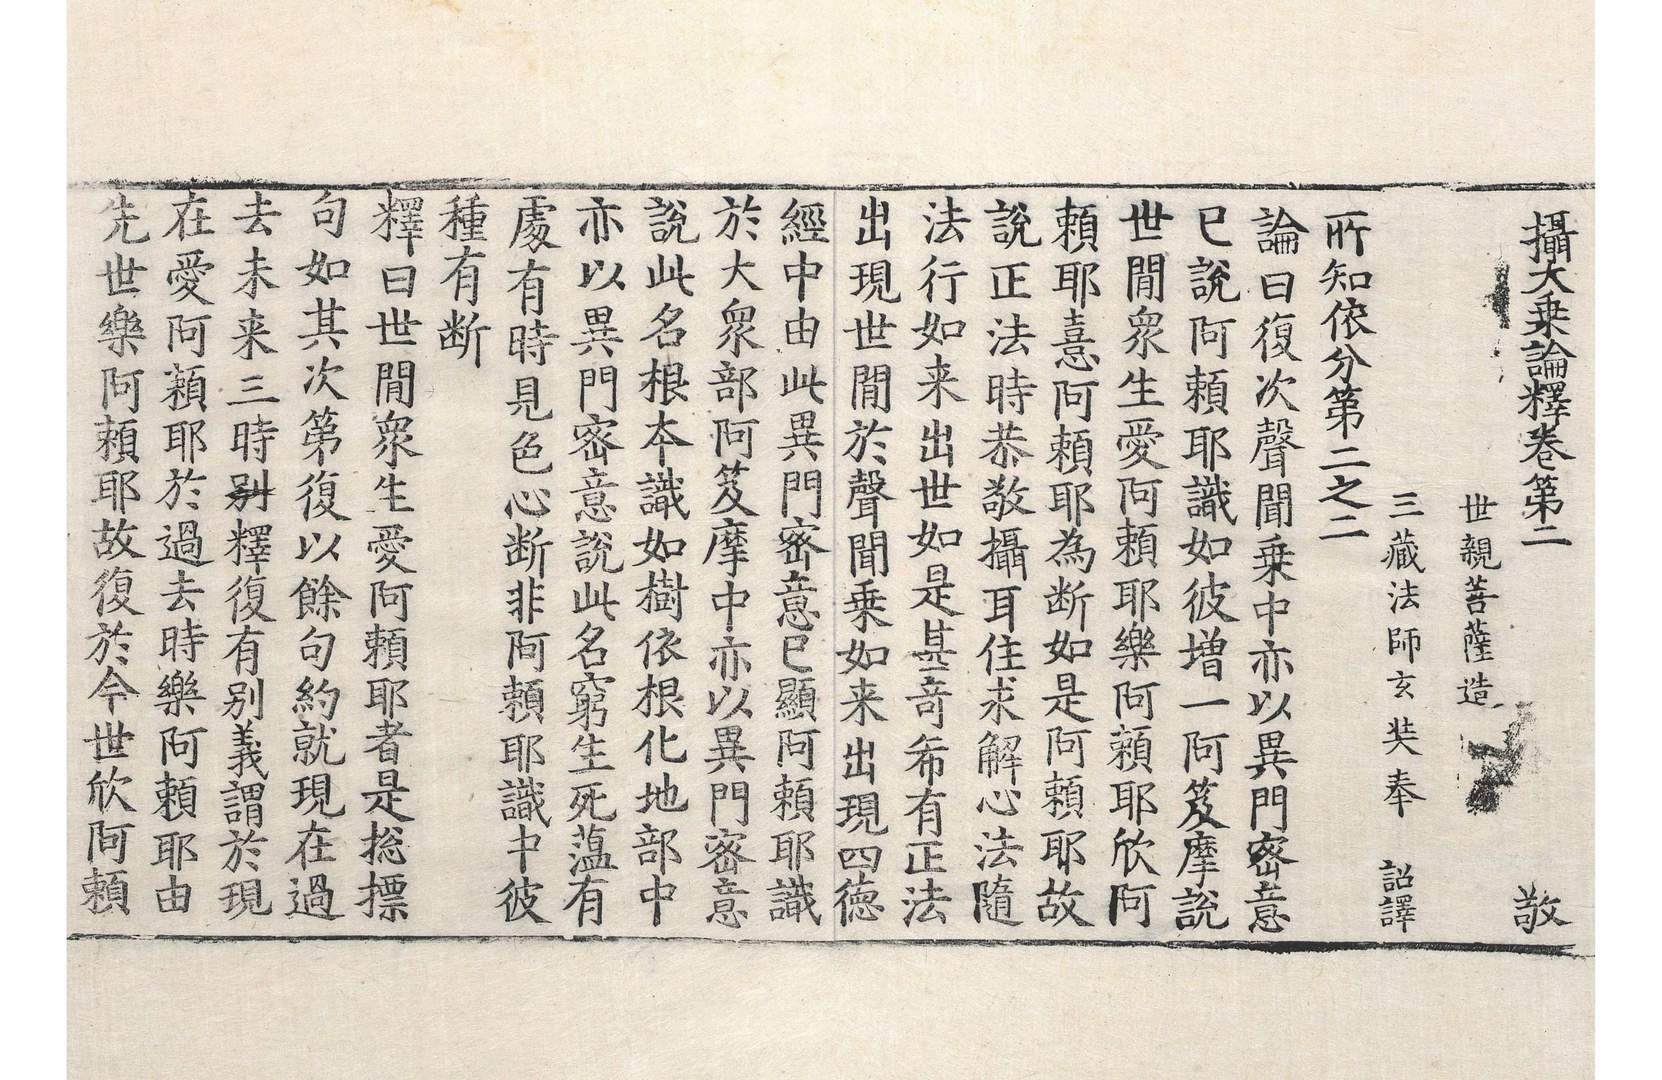 攝大乗論釋卷第二　敬
世親菩薩造
三藏法師玄奘奉　詔譯
所知依分第二之二
論曰復次聲聞乗中亦以異門密意
已說阿頼耶識如彼增一阿笈摩說
世間衆生愛阿頼耶樂阿頼耶欣阿
頼耶憙阿頼耶為断如是阿頼耶故
說正法時恭敬攝耳住求解心法隨
法行如来出世如是甚竒希有正法
出現世間於聲聞乗如来出現四德
經中由此異門密意已顯阿頼耶識
於大衆部阿笈摩中亦以異門密意
說此名根本識如樹依根化地部中
亦以異門密意說此名窮生死蕰有
處有時見色心断非阿頼耶識中彼
種有断
釋曰世間衆生愛阿頼耶者是揔摽
句如其次第復以餘句約就現在過
去未来三時別釋復有别義謂於現
在愛阿頼耶於過去時樂阿頼耶由
先世樂阿頼耶故復於今世欣阿頼